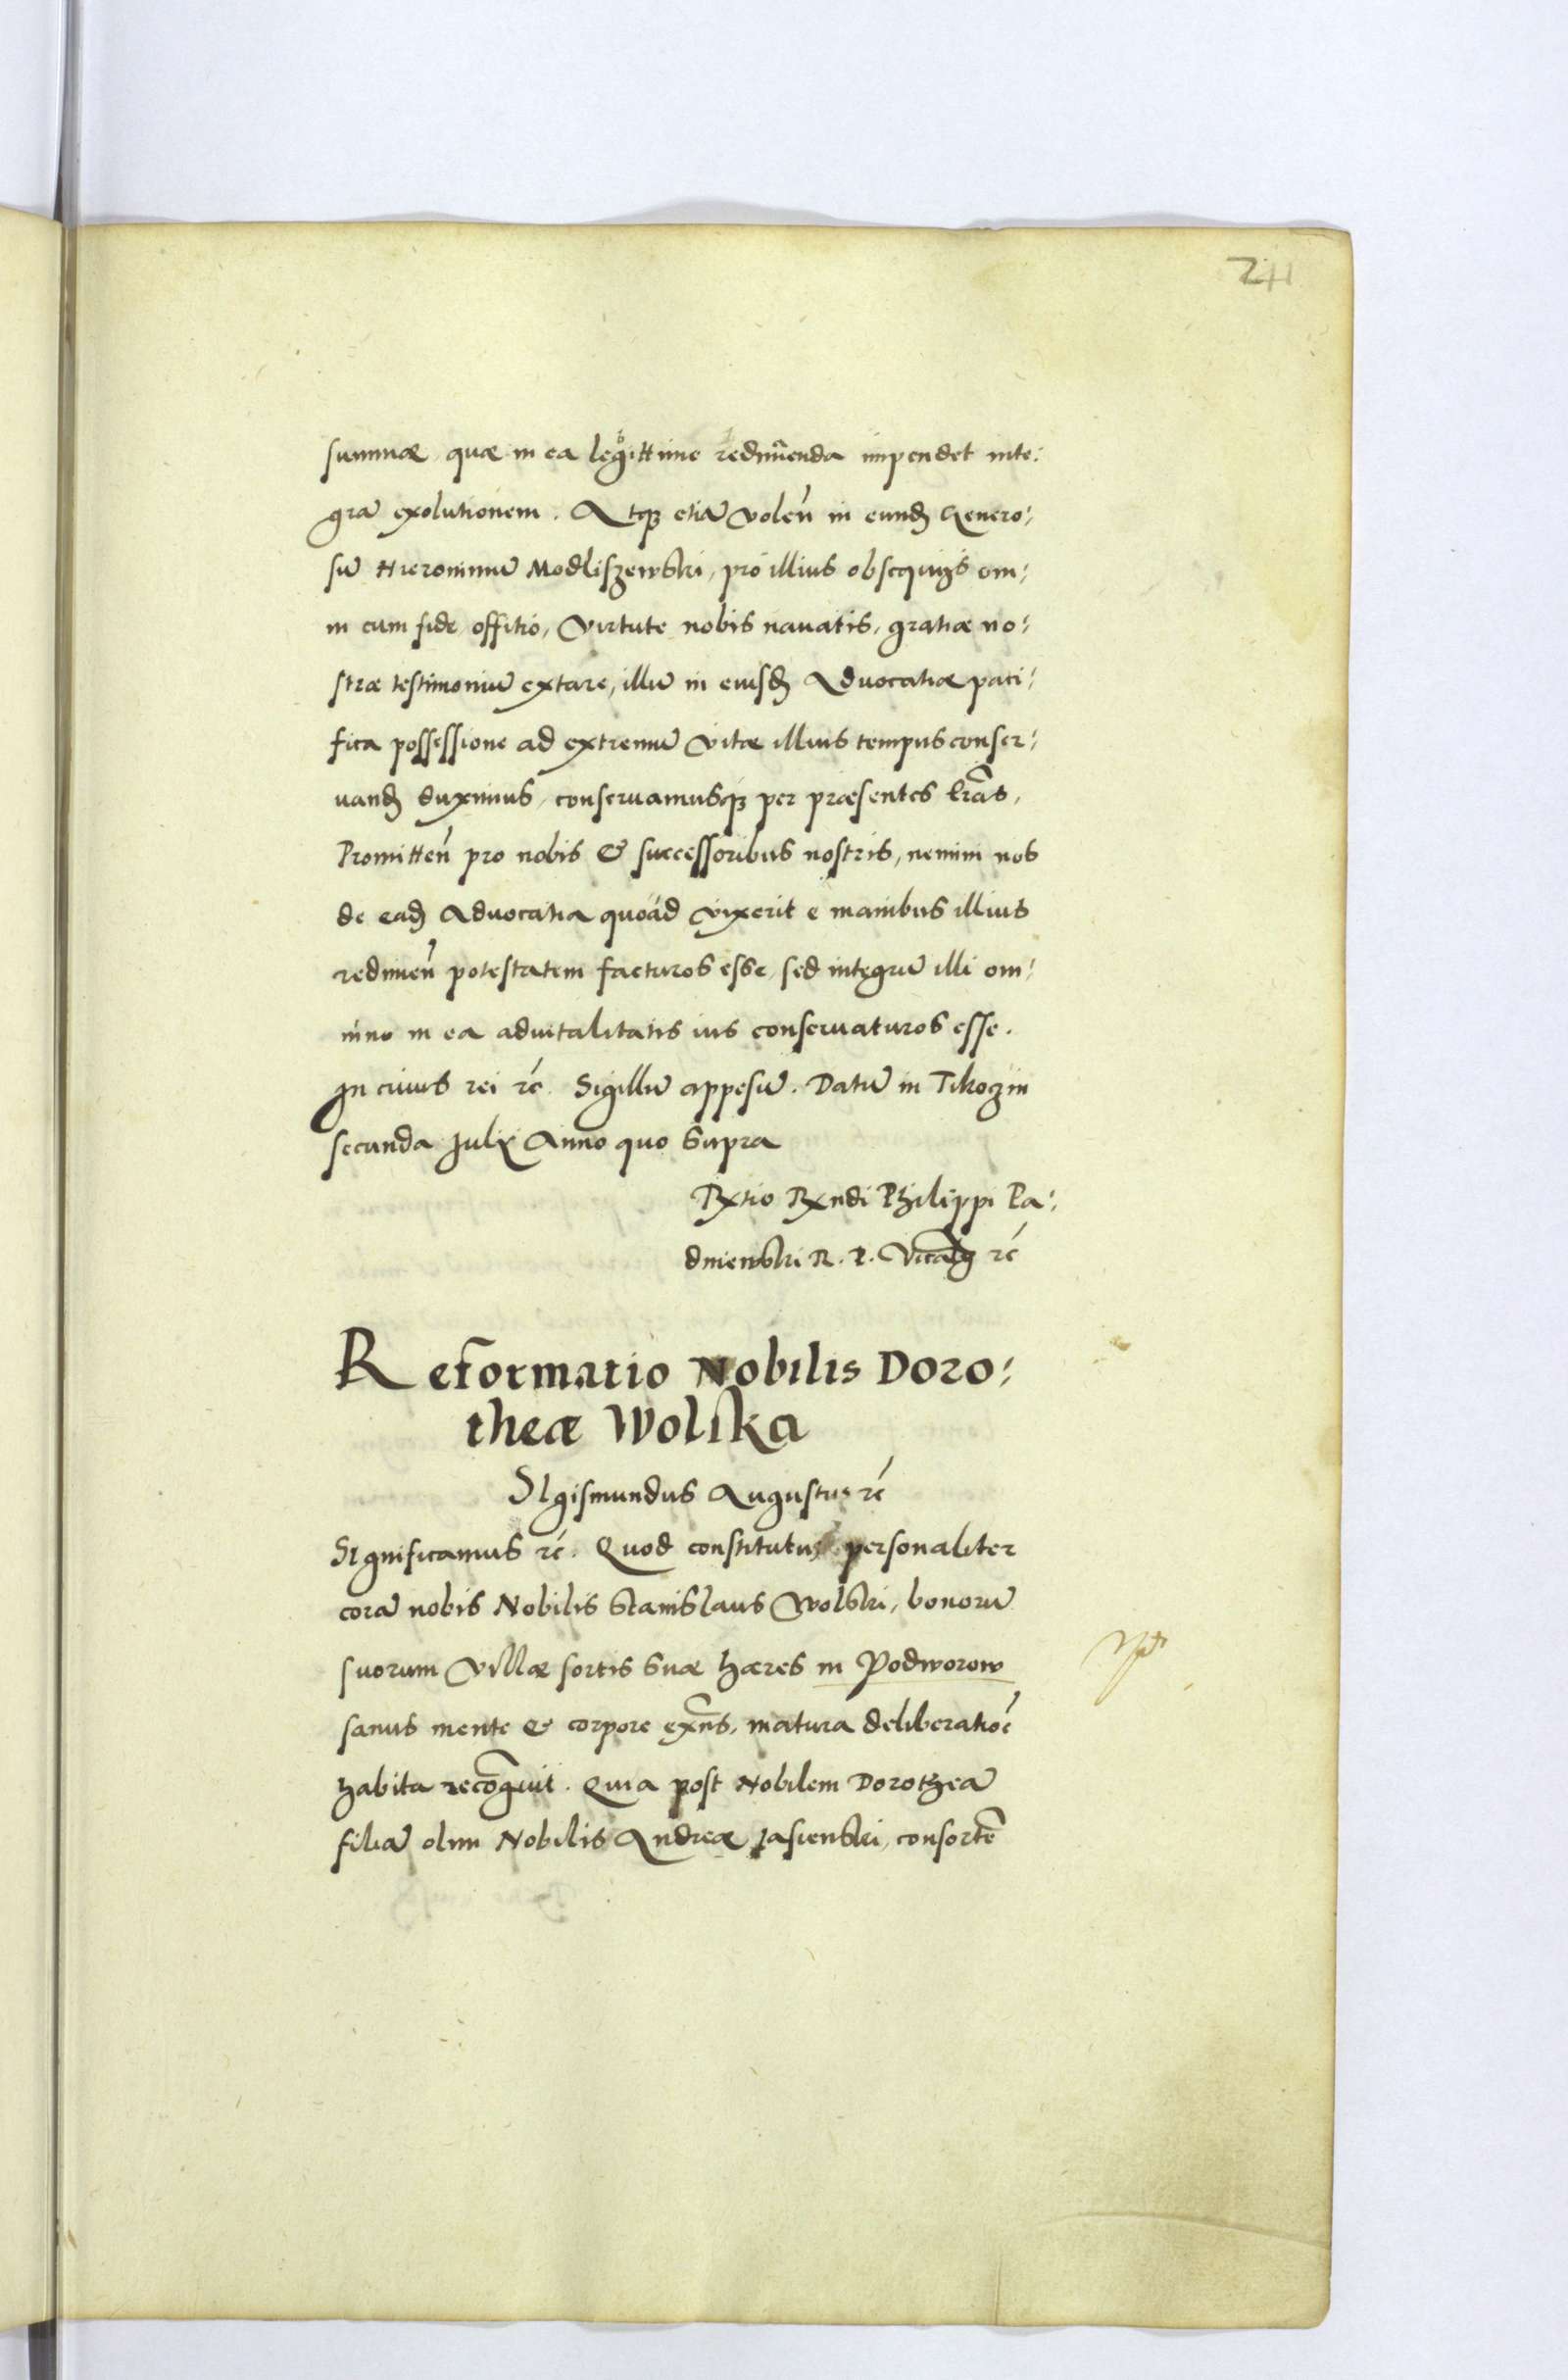 24
summæ quæ in ea legittime redimenda impendet inte:
grã exolutionem. Atqȝ etiã volen̄ in eundȩ Genero:
sũ Hieronimũ Modliszewski, pro illius obsequijs om:
ni cum fide, offitio, virtute nobis navatis, gratiæ no:
stræ testimoniũ extare, illũ in eiusdȩ Advocatiæ paci:
fica possessione ad extremũ vitæ illius tempus conser:
uandȩ duximus, conseruamusqȝ per præsentes lr̃as,
Promitten̄ pro nobis & successoribus nostris, nemini nos
de eadȩ Advocatia quoad vixerit e manibus illius
redimen̄ potestatem facturos esse, sed integrũ illi om:
nino in ea aduitalitatis ius conseruaturos esse.
In cuius rei rc̃. Sigillũ appensũ. Datũ in Tikoczin
secunda Julij Anno quo supra
Rx̃tio Rx̃ndi Philippi Pa:
dniewski R. P. Vicalĩȝ rc̃
Reformatio Nobilis Doro:
theæ Wolska
SIgismundus Augustus rc̃
SIgnificamus rc̃. Quod constitutus personaliter
corã nobis Nobilis Stanislaus Wolski, bonorũ
suorum villæ sortis suæ hæres in Podworow
sanus mente & corpore ex̃ns, matura deliberatiõe
habita recõgnuit. Quia post Nobilem Dorotheã
filiã olim Nobilis Andreæ Jasienski, consortẽ